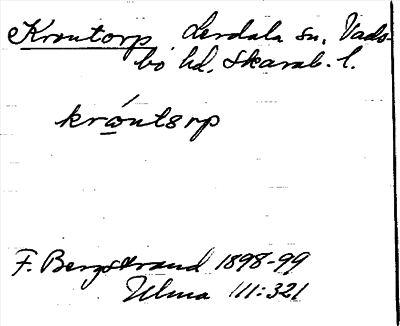 Krontorp, Lerdala sn, Vads-
bo hd, Skarab. l.
krón̩tɘrp
F. Bergstrand 1898-99
Ulma 111:321